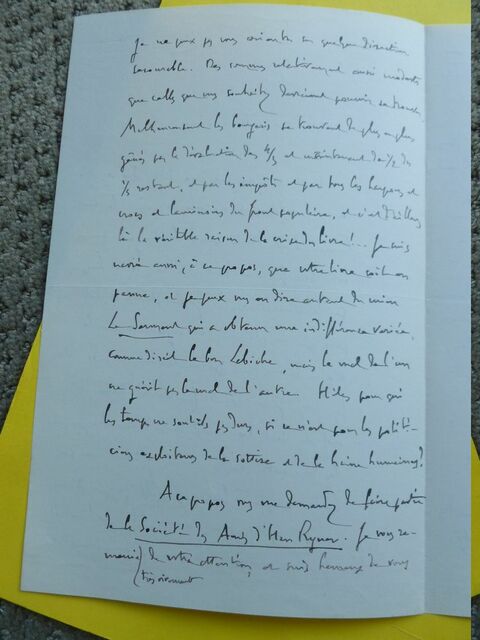 Je ne puis pas vous orienter en quelque direction
favorable. Des sommes relativement aussi modestes
que celles que vous souhaitez devraient pouvoir se trouver.
Malheureusement les bourgeois se trouvent de plus en plus
gênés par la dévaluation des 4/5 et maintenant de 1/2 du
1/5 restant, et par les impôts et par tous les
et du front populaire, et c'est d'ailleurs
là la véritable raison de la crise du livre!.. Je suis
navré aussi, à ce propos, que votre livre soit en
panne, et je puis vous en dire autant du mien
Le Serment qui a obtenu une indifférence variée,
comme disait le bon Labiche, mais le mal de l'un
ne guérit pas le mal de l'autre. Hélas pour qui
les temps ne sont-ils pas durs, si ce n'est pour les politi-
ciens exploiteurs de la sottise et de la haine humaines?
A ce propos vous me demandez de faire partie
de la Société des Amis d'Han Ryner. Je vous re-
mercie de votre attention, et suis heureux de vous
très vivement